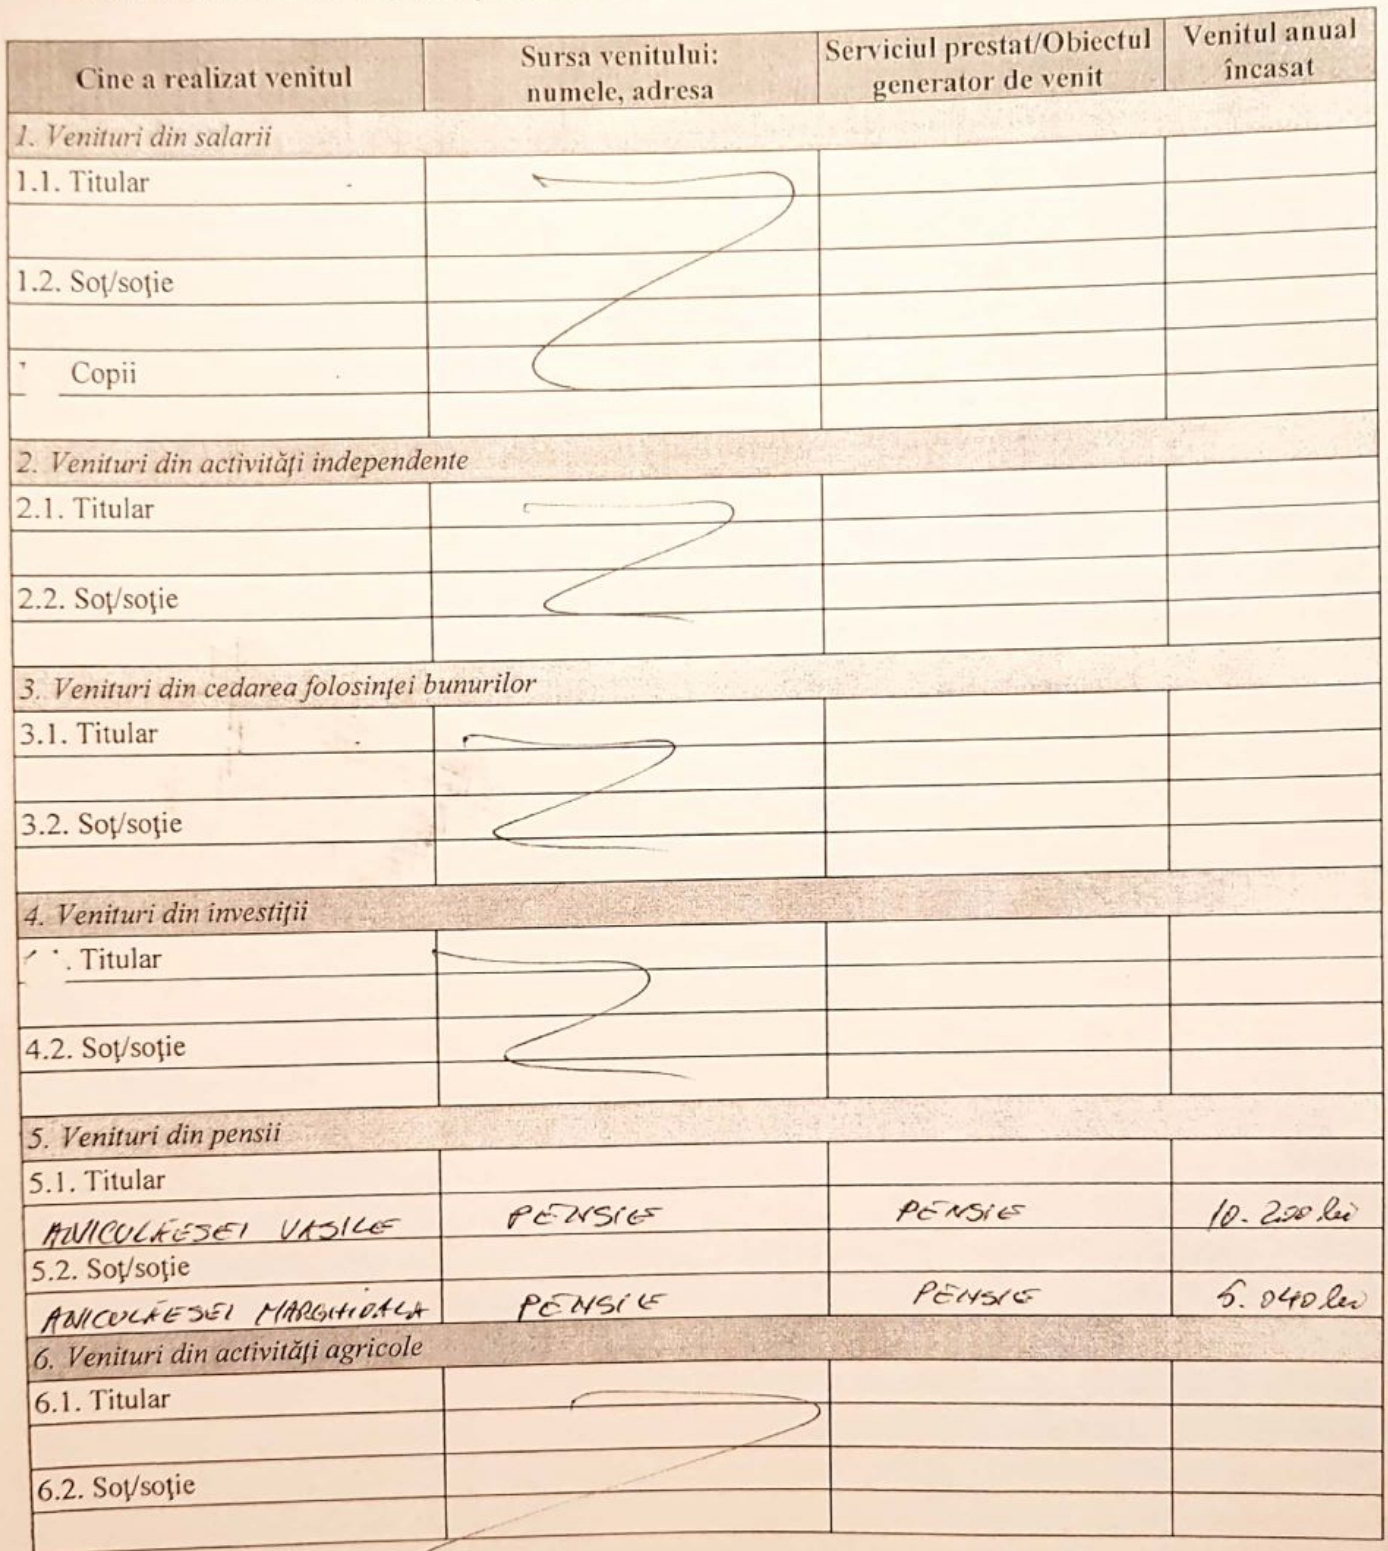 Cine a realizat venitul
Sursa venitului:
numele, adresa
Serviciul prestat/Obiectul
generator de venit
Venitul anual
încasat
1. Venituri din salarii
1.1. Titular
1.2. Soţ/soţie
Copii
2. Venituri din activităţi independente
2.1. Titular
2.2. Soţ/soţie
3. Venituri din cedarea folosinţei bunurilor
3.1. Titular
3.2. Soţ/soţie
4. Venituri din investiţii
. Titular
4.2. Soţ/soţie
5. Venituri din pensii
5.1. Titular
ANICULĂESEI VASILE PENSIE PENSIE 10.200 lei
5.2. Soţ/soţie
ANICULĂESEI MARGHIOALA PENSIE PENSIE 5.040 lei
6. Venituri din activităţi agricole
6.1. Titular
6.2. Soţ/soţie